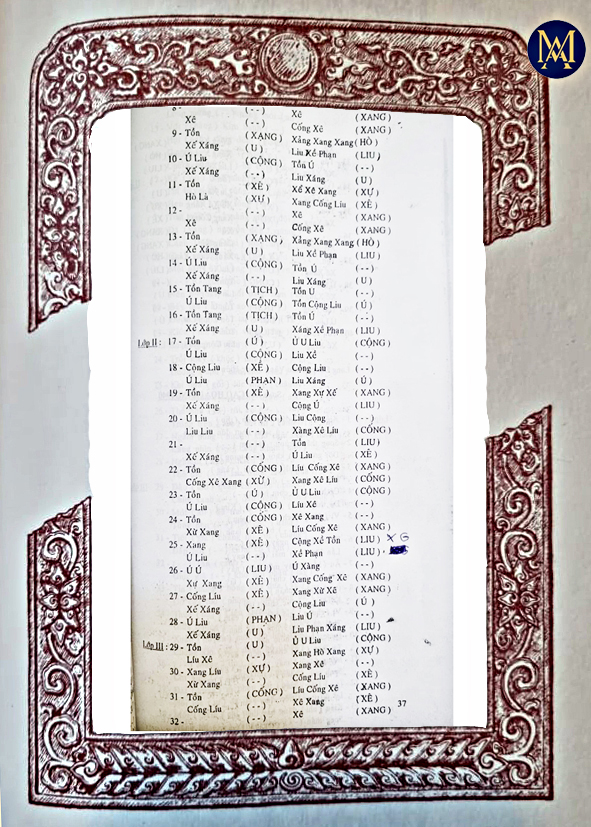 MA
8 - (--) Xê (XANG)
Xê (--) Cống Xê (XANG)
9 - Tồn (XANG) Xảng Xang Xang (HÒ)
Xế Xáng (U) Liu Xề Phạn (LIU)
10 - Ú Liu (CỘNG) Tồn Ú (--)
Xế Xáng (--) Liu Xáng (U)
11 - Tồn (XÊ) Xề Xê Xang (XỰ)
Hò La (XỰ) Xang Cống Liu (XÊ)
12 - (--) Xê (XANG)
Xê (--) Cống Xê (XANG)
13 - Tồn (XANG) Xảng Xang Xang (HÒ)
Xế Xáng (U) Liu Xề Phạn (LIU)
14 - Ú Liu (CỘNG) Tồn Ú (--)
Xế Xáng (--) Liu Xáng (U)
15 - Tồn Tang (TỊCH) Tồn U (--)
Ú Liu (CỘNG) Tồn Cộng Liu (Ú)
16 - Tồn Tang (TỊCH) Tồn Ú (--)
Xế Xáng (U) Xáng Xề Phạn (LIU)
Lớp II : 17 - Tồn (Ú) Ú U Liu (CỘNG)
Ú Liu (CỘNG) Liu Xề (--)
18 - Cộng Liu (XỀ) Cộng Liu (--)
Ú Liu (PHAN) Liu Xáng (Ú)
19 - Tồn (XÊ) Xang Xự Xế (XANG)
Xế Xáng (--) Cộng Ú (LIU)
20 - Ú Liu (CỘNG) Liu Cộng (--)
Liu Liu (--) Xàng Xê Liu (CỐNG)
21 - (--) Tồn (LIU)
Xế Xáng (--) Ú Liu (XÊ)
22 - Tồn (CỐNG) Líu Cống Xê (XANG)
Cống Xê Xang (XỪ) Xang Xê Líu (CỐNG)
23 - Tồn (Ú) Ú U Liu (CỘNG)
Ú Liu (CỘNG) Líu Xê (--)
24 - Tồn (CỐNG) Xê Xang (--)
Xừ Xang (XÊ) Líu Cống Xê (XANG)
25 - Xang (XÊ) Cộng Xề Tồn (LIU) X G
Ú Liu (--) Xề Phạn (LIU)
26 - Ú Ú (LIU) Ú Xàng (--)
Xự Xang (XÊ) Xang Cống Xê (XANG)
27 - Cống Líu (XÊ) Xang Xừ Xê (XANG)
Xế Xáng (--) Cộng Liu (Ú)
28 - Ú Liu (PHẠN) Liu Ú (--)
Xế Xáng (U) Liu Phạn Xáng (LIU)
Lớp III : 29 - Tồn (U) Ú U Liu (CỘNG)
Líu Xê (--) Xang Hò Xang (XỰ)
30 - Xang Líu (XỰ) Xang Xê (--)
Xừ Xang (--) Cống Líu (XÊ)
31 - Tồn (CỐNG) Líu Cống Xê (XANG)
Cống Líu (--) Xê Xang (XÊ) 37
32 - (--) Xê (XANG)